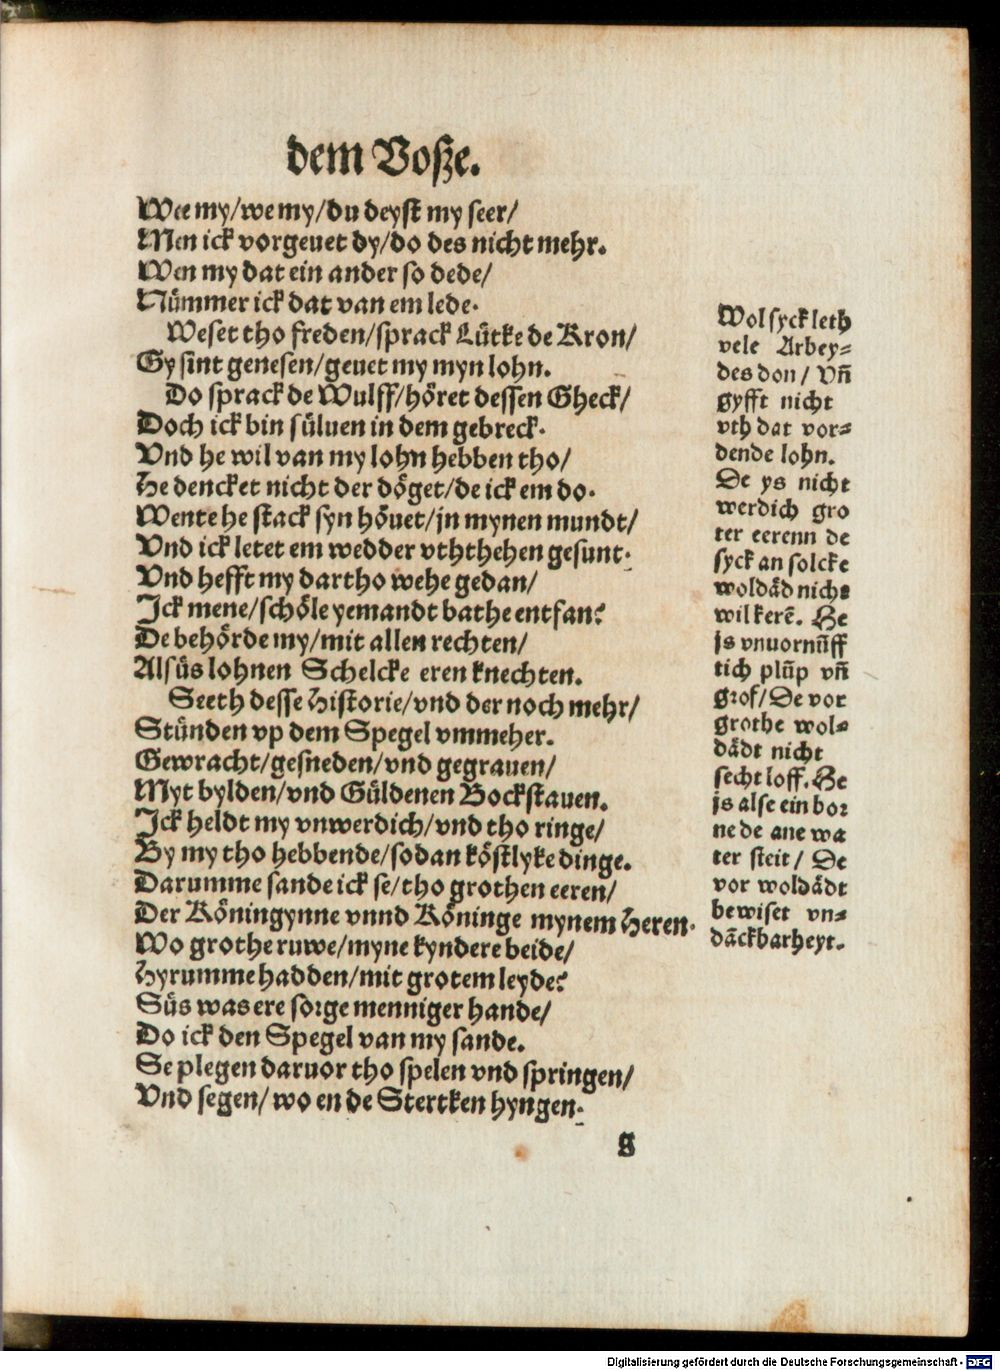 dem Voße.
Wee my/we my/du deyst my seer/
Men ick vorgeuet dy/do des nicht mehr.
Wen my dat ein ander so dede/
Nümmer ick dat van em lede.
Weset tho freden/sprack Lütke de Kron/
Gy sint genesen/geuet my myn lohn.
Do sprack de Wulff/höret dessen Gheck/
Doch ick bin süluen in dem gebreck.
Vnd he wil van my lohn hebben tho/
He dencket nicht der döget/de ick em do.
Wente he stack syn höuet/jn mynen mundt/
Vnd ick letet em wedder vththehen gesunt.
Vnd hefft my dartho wehe gedan/
Ick mene/schöle yemandt bathe entfan?
De behörde my/mit allen rechten/
Alsüs lohnen Schelcke eren knechten.
Seeth desse Historie/vnd der noch mehr/
Stünden vp dem Spegel vmmeher.
Gewracht/gesneden/vnd gegrauen/
Myt bylden/vnd Güldenen Bockstauen.
Ick heldt my vnwerdich/vnd tho ringe/
By my tho hebbende/sodan köstlyke dinge.
Darumme sande ick se/tho grothen eeren/
Der Köningynne vnnd Köninge mynem Heren.
Wo grothe ruwe/myne kyndere beide/
Hyrumme hadden/mit grotem leyde?
Süs was ere sorge menniger hande/
Do ick den Spegel van my sande.
Se plegen daruor tho spelen vnd springen/
Vnd segen/wo en de Stertken hyngen.
Wol syck leth
vele Arbey=
des don/ vñ
gyfft nicht
vth dat vor=
dende lohn.
De ys nicht
werdich gro
ter eerenn de
syck an solcke
woldäd nicht
wil kerē. He
js vnuornüff
tich plūp vñ
grof/De vor
grothe wol=
dädt nicht
secht loff. He
js alse ein bor
ne de ane wa
ter steit/ De
vor woldädt
bewiset vn=
dāckbarheyt.
Digitalisierung gefördert durch die Deutsche Forschungsgemeinschaft - DFG